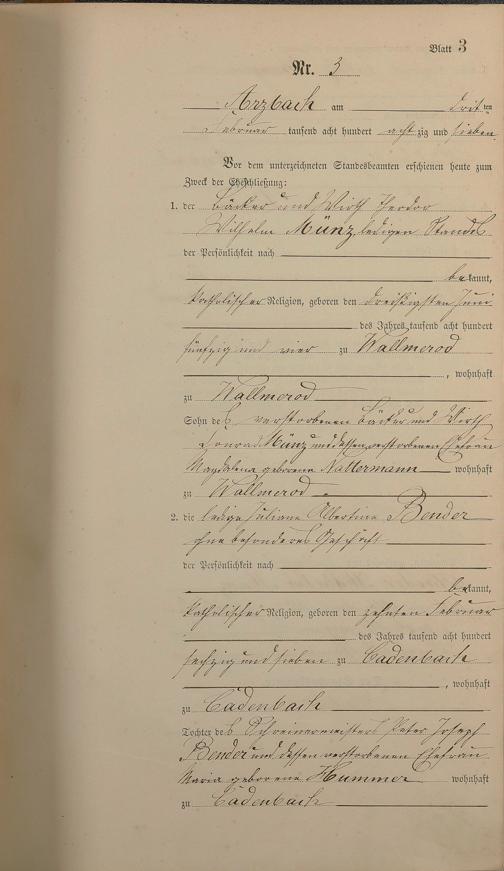 Blatt 3
Nr. 3
Arzbach am dritten
Februar tausend acht hundert achtzig und sieben
Vor dem unterzeichneten Standesbeamten erschienen heute zum
Zweck der Eheschließung:
1. der Bäcker und Wirth Theodor
Wilhelm Münz, ledigen Standes
der Persönlichkeit nach
bekannt,
katholischer Religion, geboren den dreißigsten Juni
des Jahres tausend acht hundert
fünfzig und vier zu Wallmerod
, wohnhaft
zu Wallmerod
Sohn des verstorbenen Bäcker und Wirth
Münz und dessen verstorbenen Ehefrau
Magdalena geborene Nattermann wohnhaft
zu Wallmerod
2. die ledige Juliane Albertine Bender
ohne besonderes Geschäft
der Persönlichkeit nach
bekannt,
katholischer Religion, geboren den zehnten Februar
des Jahres tausend acht hundert
sechzig und sieben zu Cadenbach
, wohnhaft
zu Cadenbach
Tochter des Schreinermeisters Peter Joseph
Bender und dessen verstorbenen Ehefrau
Maria geborene Hummer wohnhaft
zu Cadenbach